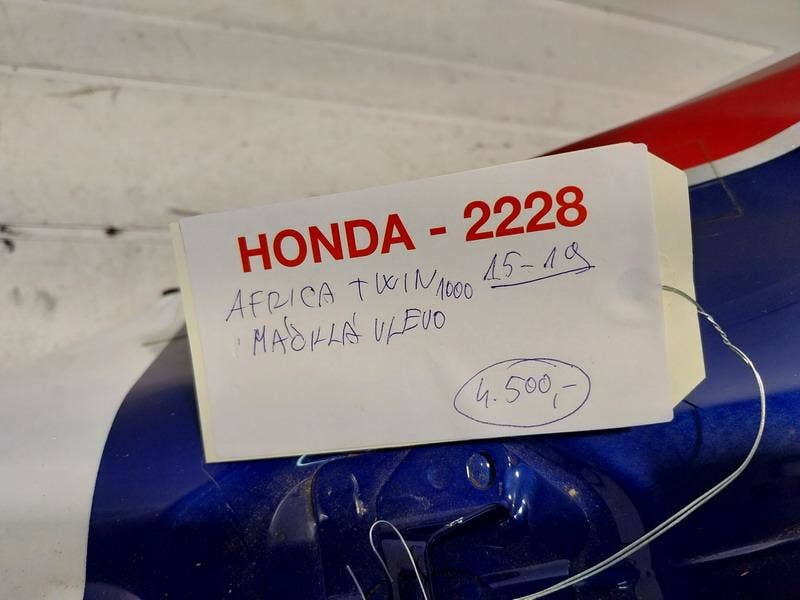 HONDA - 2228
AFRICA TWIN 1000 15-19
MAČKLÁ VLEVO
4.500,-